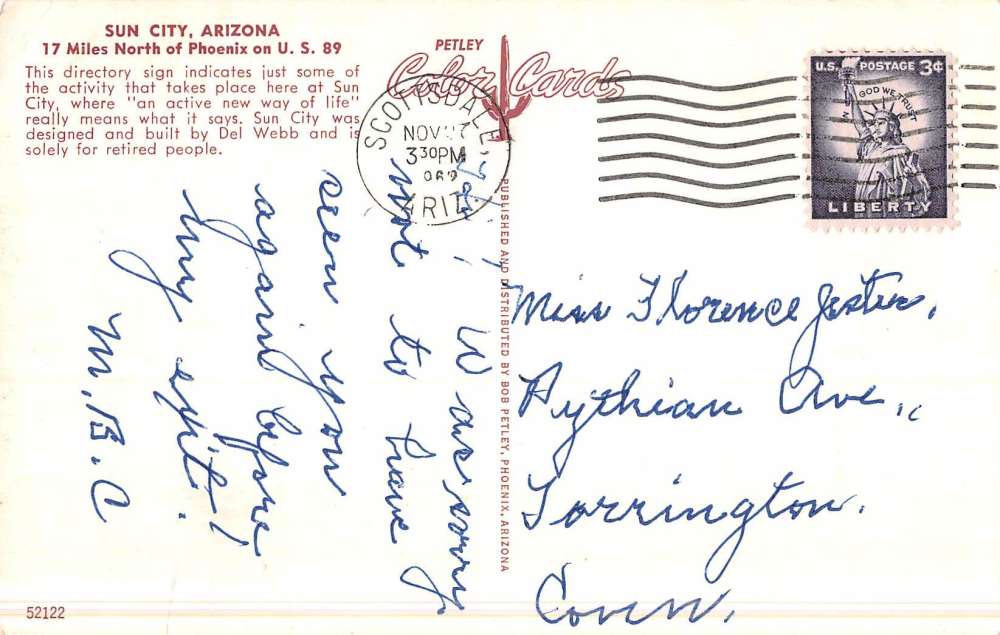 SUN CITY, ARIZONA
17 Miles North of Phoenix on U. S. 89
This directory sign indicates just some of
the activity that takes place here at Sun
City, where "an active new way of life"
really means what it says. Sun City was
designed and built by Del Webb and is
solely for retired people.
PETLEY
Color Cards
SCOTTSDALE,
NOV
3 30 PM
ARIZ
U.S. POSTAGE 3¢
IN GOD WE TRUST
LIBERTY
! Was sorry
not to have
seen you
again before
my exit!
M.B.C
PUBLISHED AND DISTRIBUTED BY BOB PETLEY, PHOENIX, ARIZONA
Miss Florence Jester,
Pythian Ave.,
Torrington.
Conn.
52122